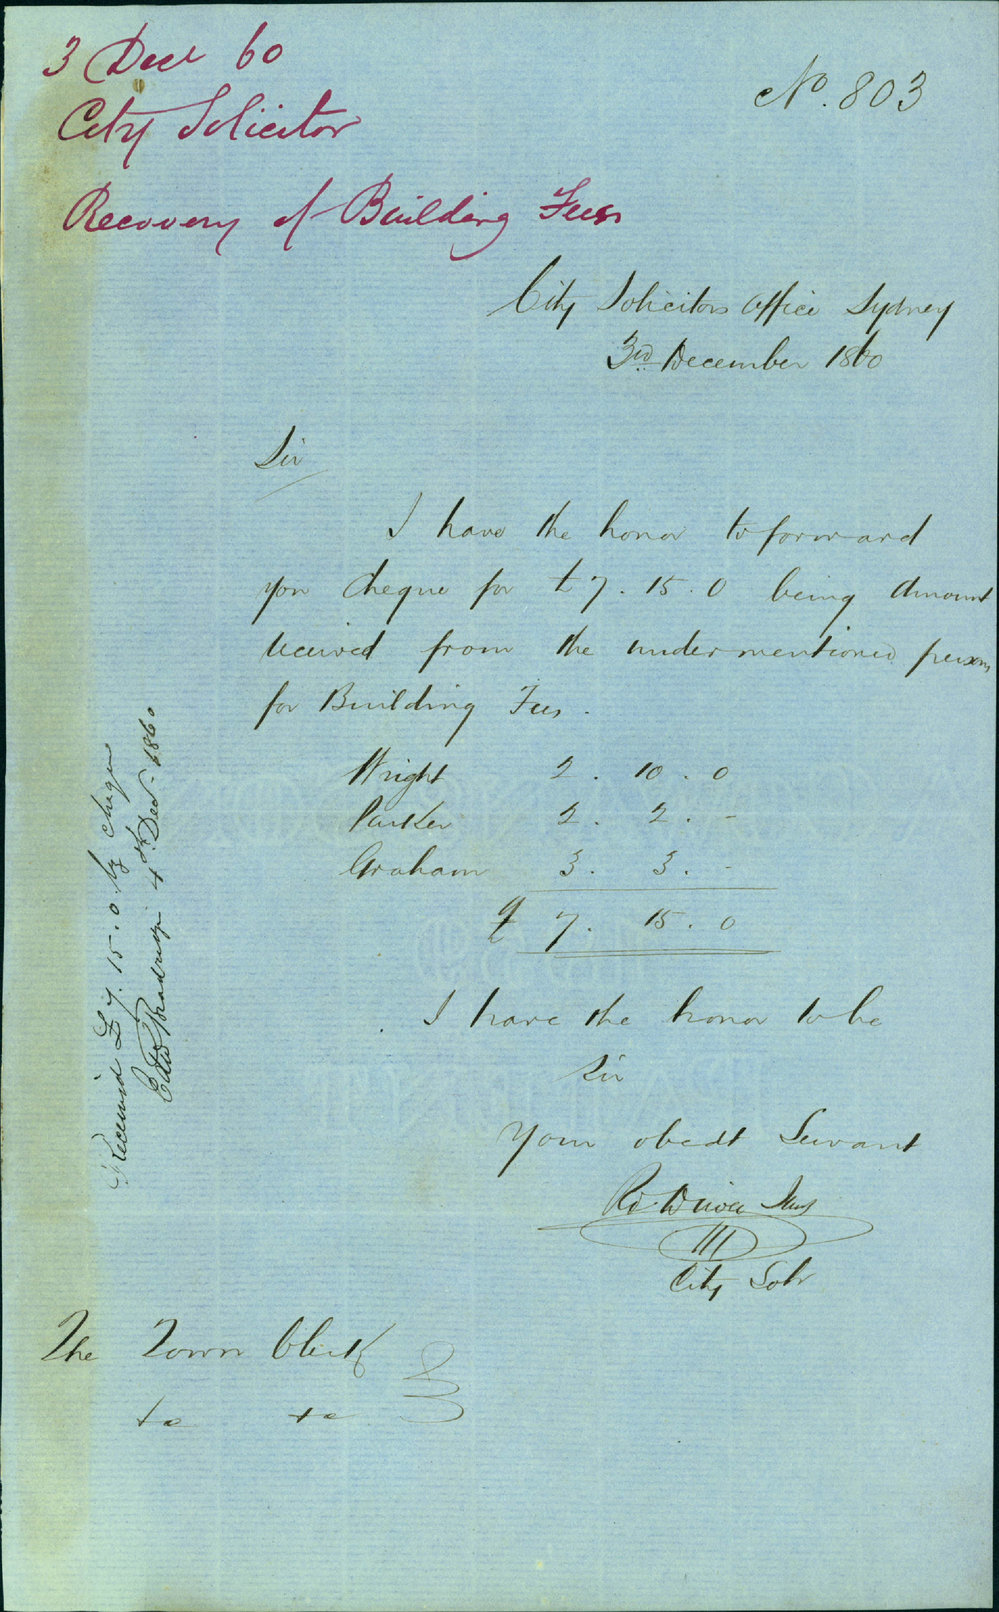 3 Decr 60
No. 803
City Solicitor
Recovery of Building Fees
City Solicitors Office Sydney
3rd December 1860
Sir
I have the honor to forward
you cheque for £7. 15. 0 being amount
received from the undermentioned persons
for Building Fees.
Wright 2. 10. 0
Parker 2. 2. -
Graham 3. 3. -
£ 7. 15. 0
I have the honor to be
Sir
Your obedt Servant
Rd. Driver Junr
City Solr
The Town Clerk
Received £7. 15. 0 by cheque
4th Decr 1860